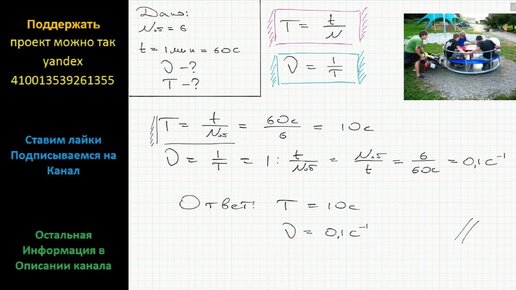 Поддержать
проект можно так
yandex
410013539261355
Ставим лайки
Подписываемся на
Канал
Остальная
Информация в
Описании канала
Дано:
Nоб = 6
t = 1 мин = 60с
ν - ?
T - ?
T = t/N
ν = 1/T
T = t/Nоб = 60с/6 = 10с
ν = 1/T = 1 : t/Nоб = Nоб/t = 6/60с = 0,1с⁻¹
Ответ: T = 10с
ν = 0,1с⁻¹